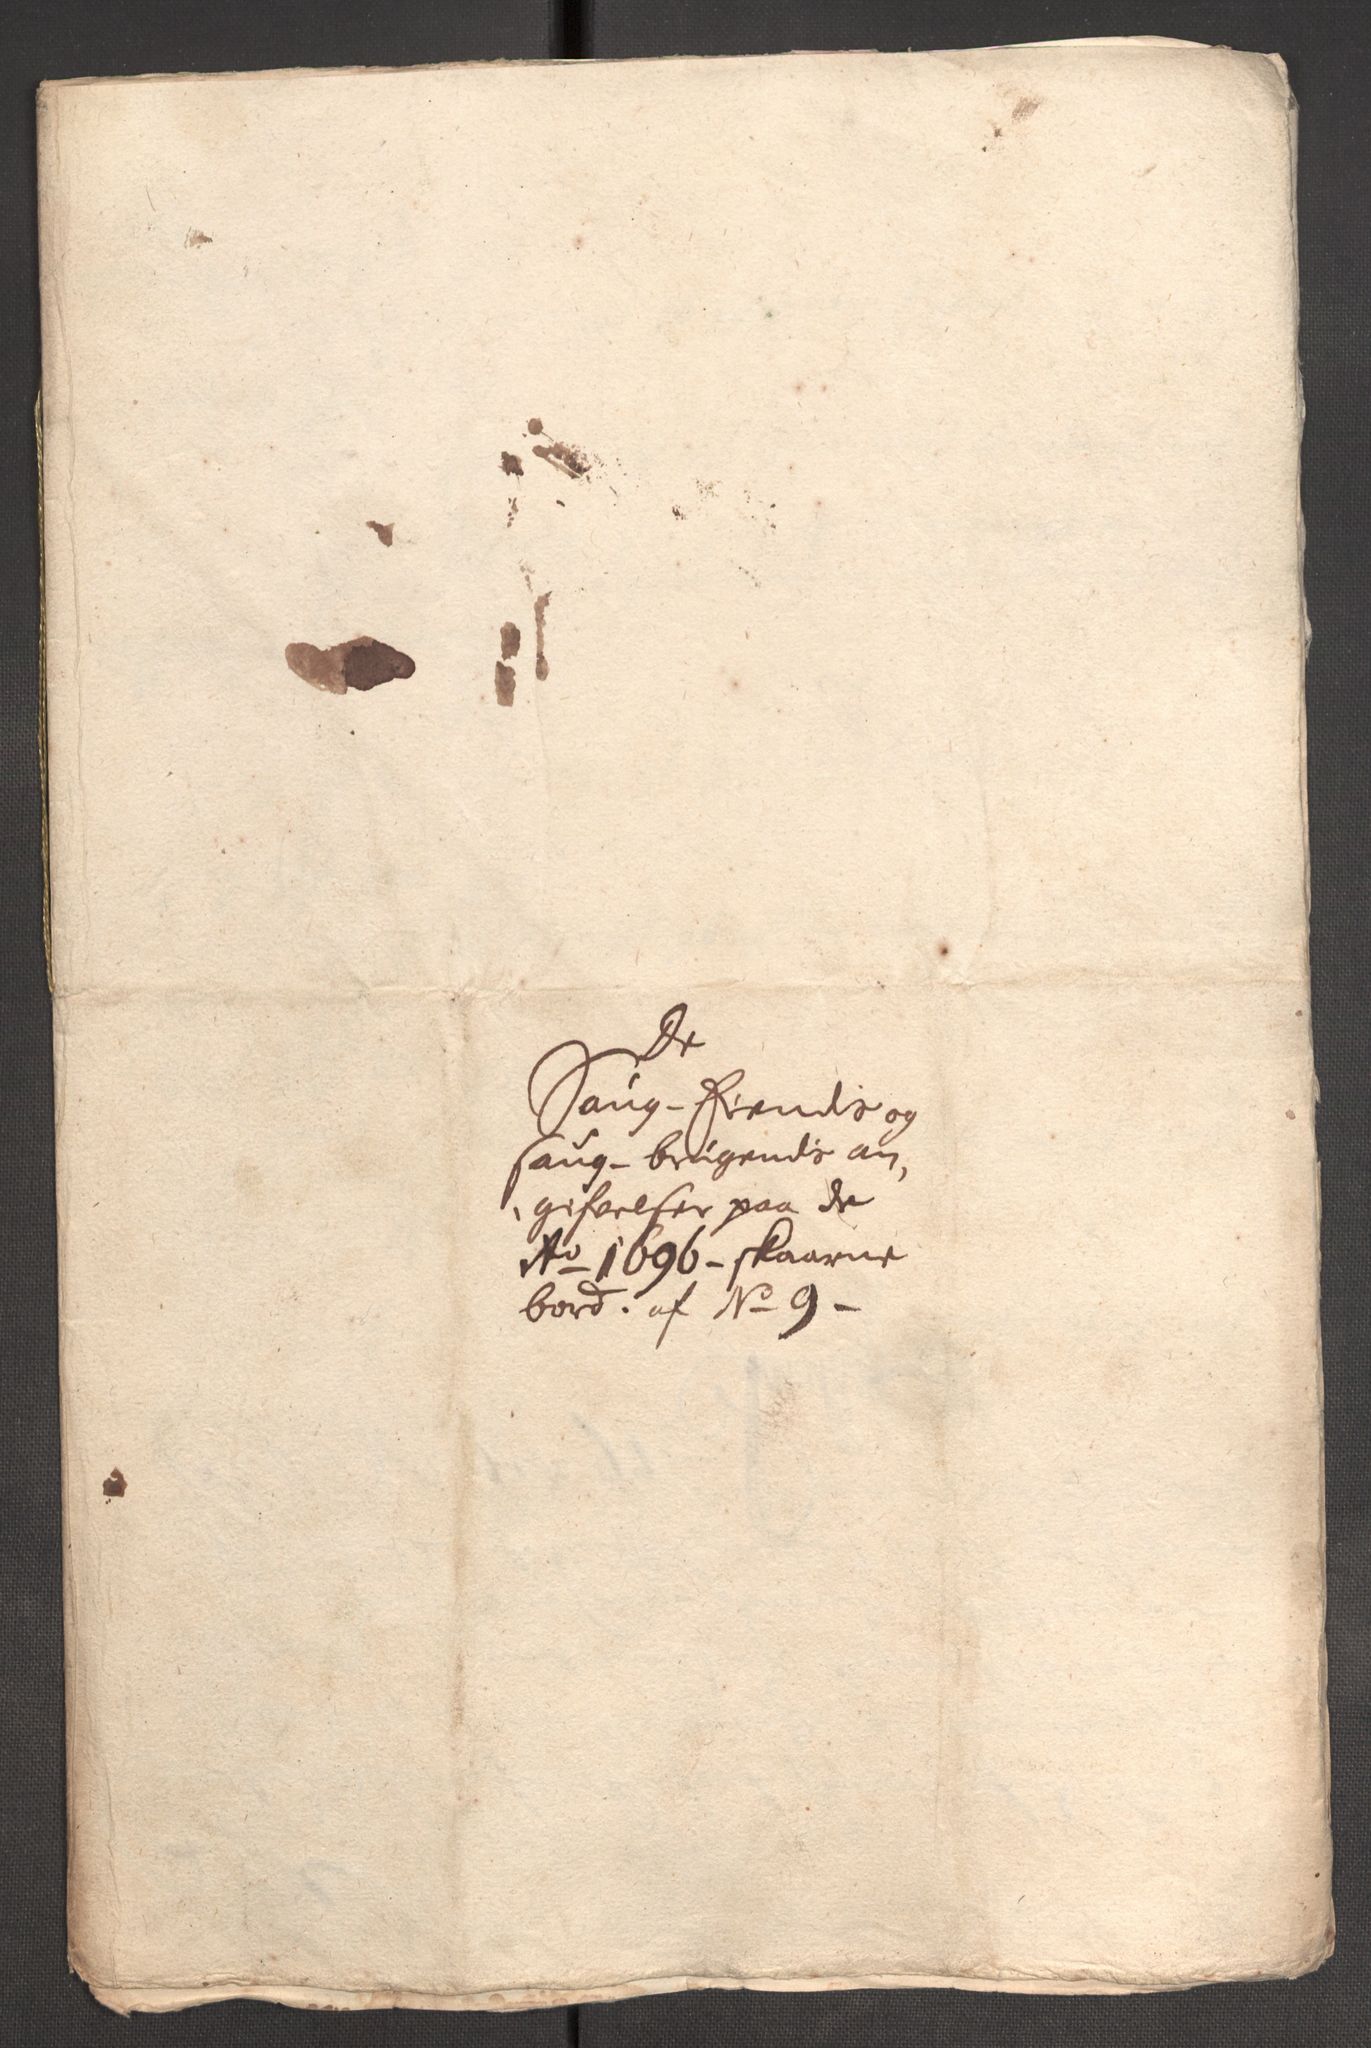 De
Saug-Eiendis og
saug-brugendis an,
,gifvelser paa de
Ao 1696 - skaarne
bord. af No 9 -